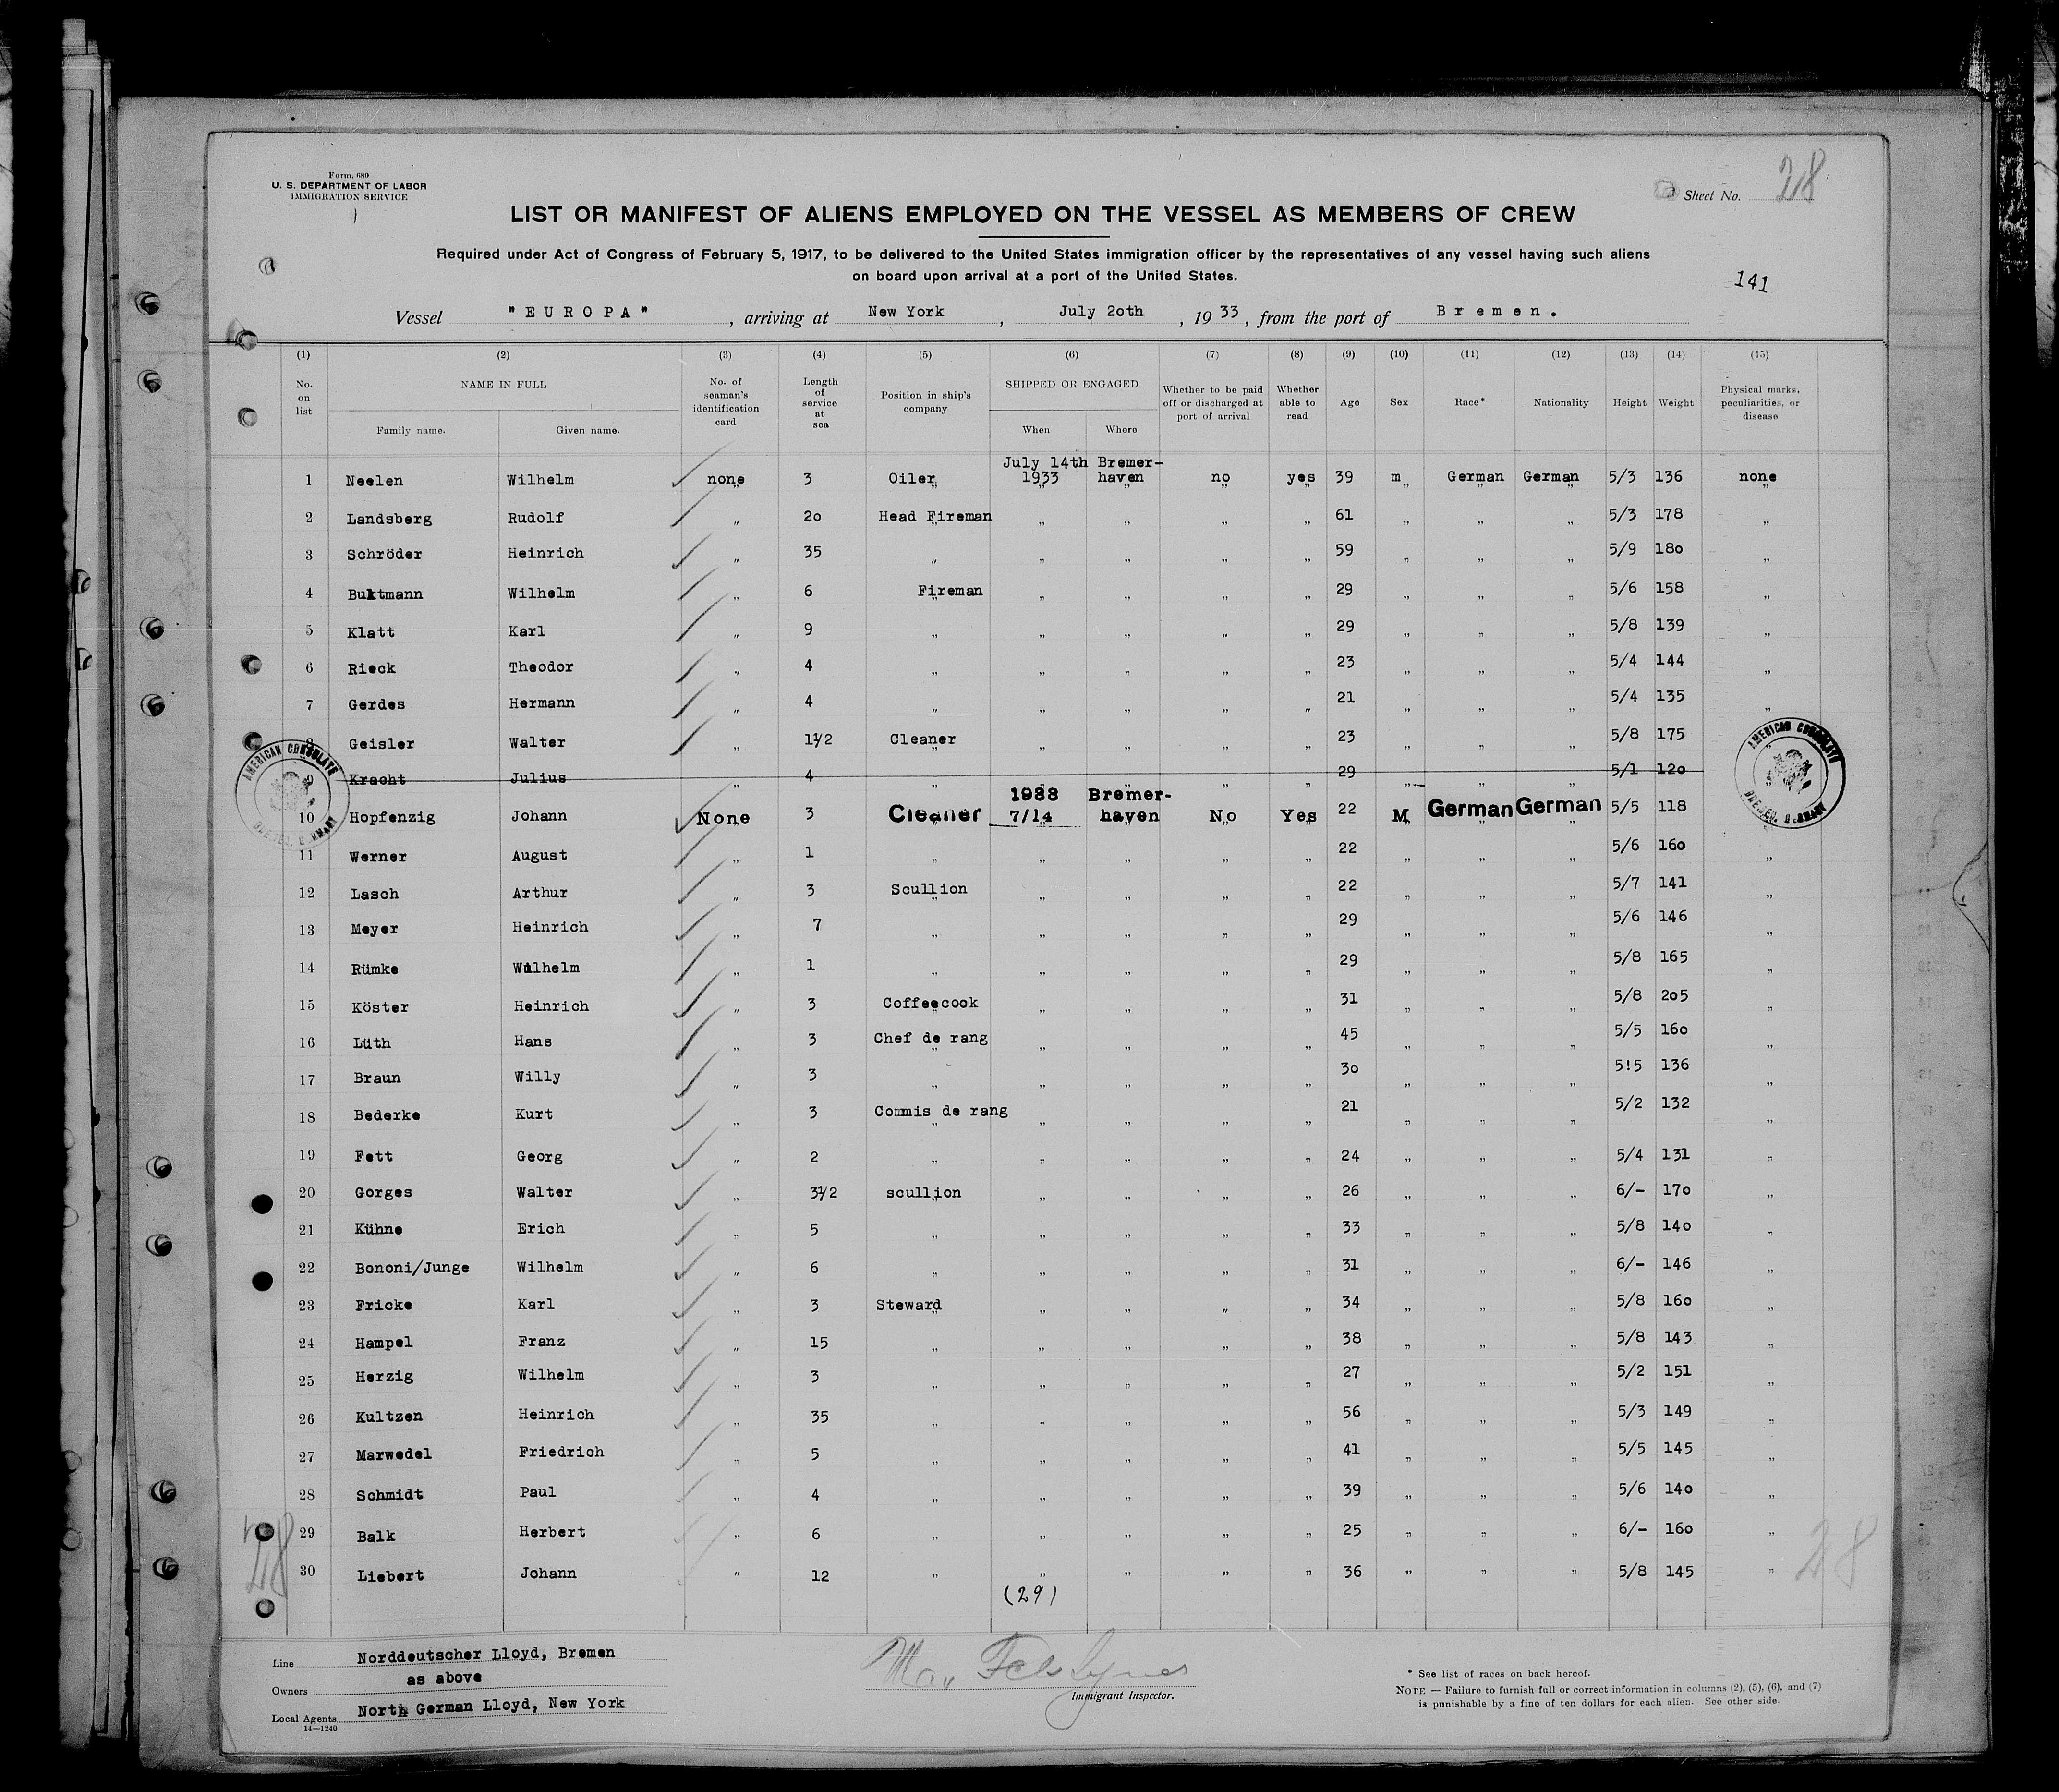 Form 680
U. S. DEPARTMENT OF LABOR
IMMIGRATION SERVICE
Sheet No. 28
LIST OR MANIFEST OF ALIENS EMPLOYED ON THE VESSEL AS MEMBERS OF CREW
Required under Act of Congress of February 5, 1917, to be delivered to the United States immigration officer by the representatives of any vessel having such aliens
on board upon arrival at a port of the United States.
141
Vessel "EUROPA", arriving at New York, July 2oth, 1933, from the port of Bremen.
(1) (2) (3) (4) (5) (6) (7) (8) (9) (10) (11) (12) (13) (14) (15)
No. on list NAME IN FULL Family name. Given name. No. of seaman's identification card Length of service at sea Position in ship's company SHIPPED OR ENGAGED When Where Whether to be paid off or discharged at port of arrival Whether able to read Age Sex Race* Nationality Height Weight Physical marks, peculiarities, or disease
1 Neelen Wilhelm none 3 Oiler July 14th 1933 Bremer-haven no yes 39 m German German 5/3 136 none
2 Landsberg Rudolf " 2o Head Fireman " " " " 61 " " " 5/3 178 "
3 Schröder Heinrich " 35 " " " " " 59 " " " 5/9 18o "
4 Buktmann Wilhelm " 6 Fireman " " " " 29 " " " 5/6 158 "
5 Klatt Karl " 9 " " " " " 29 " " " 5/8 139 "
6 Rieck Theodor " 4 " " " " " 23 " " " 5/4 144 "
7 Gerdes Hermann " 4 " " " " " 21 " " " 5/4 135 "
8 Geisler Walter " 1½ Cleaner " " " " 23 " " " 5/8 175
9 Kracht Julius " 4 " " " " " 29 " " " 5/1 12o
10 Hopfenzig Johann None 3 Cleaner 1933 7/14 Bremer-haven No Yes 22 M German German 5/5 118
11 Werner August " 1 " " " " " 22 " " " 5/6 16o "
12 Lasch Arthur " 3 Scullion " " " " 22 " " " 5/7 141 "
13 Meyer Heinrich " 7 " " " " " 29 " " " 5/6 146 "
14 Rümke Wilhelm " 1 " " " " " 29 " " " 5/8 165 "
15 Köster Heinrich " 3 Coffeecook " " " " 31 " " " 5/8 2o5 "
16 Lüth Hans " 3 Chef de rang " " " " 45 " " " 5/5 16o "
17 Braun Willy " 3 " " " " " 3o " " " 5!5 136 "
18 Bederke Kurt " 3 Commis de rang " " " " 21 " " " 5/2 132 "
19 Fett Georg " 2 " " " " " 24 " " " 5/4 131 "
20 Gorges Walter " 3½ scullion " " " " 26 " " " 6/- 17o "
21 Kühne Erich " 5 " " " " " 33 " " " 5/8 14o "
22 Bononi/Junge Wilhelm " 6 " " " " " 31 " " " 6/- 146 "
23 Fricke Karl " 3 Steward " " " " 34 " " " 5/8 16o "
24 Hampel Franz " 15 " " " " " 38 " " " 5/8 143 "
25 Herzig Wilhelm " 3 " " " " " 27 " " " 5/2 151 "
26 Kultzen Heinrich " 35 " " " " " 56 " " " 5/3 149 "
27 Marwedel Friedrich " 5 " " " " " 41 " " " 5/5 145 "
28 Schmidt Paul " 4 " " " " " 39 " " " 5/6 14o "
29 Balk Herbert " 6 " " " " " 25 " " " 6/- 16o "
30 Liebert Johann " 12 " " " " " 36 " " " 5/8 145 "
AMERICAN CONSULATE
AMERICAN CONSULATE
28
28
(29)
Line Norddeutscher Lloyd, Bremen
Owners as above
Local Agents North German Lloyd, New York
14—1240
Immigrant Inspector.
* See list of races on back hereof.
NOTE — Failure to furnish full or correct information in columns (2), (5), (6), and (7)
is punishable by a fine of ten dollars for each alien. See other side.